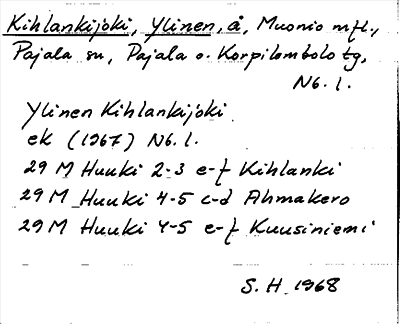 Kihlankijoki, Ylinen, å, Muonio mfl.,
Pajala sn, Pajala o. Korpilombolo tg,
Nb. l.
Ylinen Kihlankijoki
ek (1967) Nb. l.
29 M Huuki 2-3 e-f Kihlanki
29 M Huuki 4-5 c-d Ahmakero
29 M Huuki 4-5 e-f Kuusiniemi
S. H. 1968